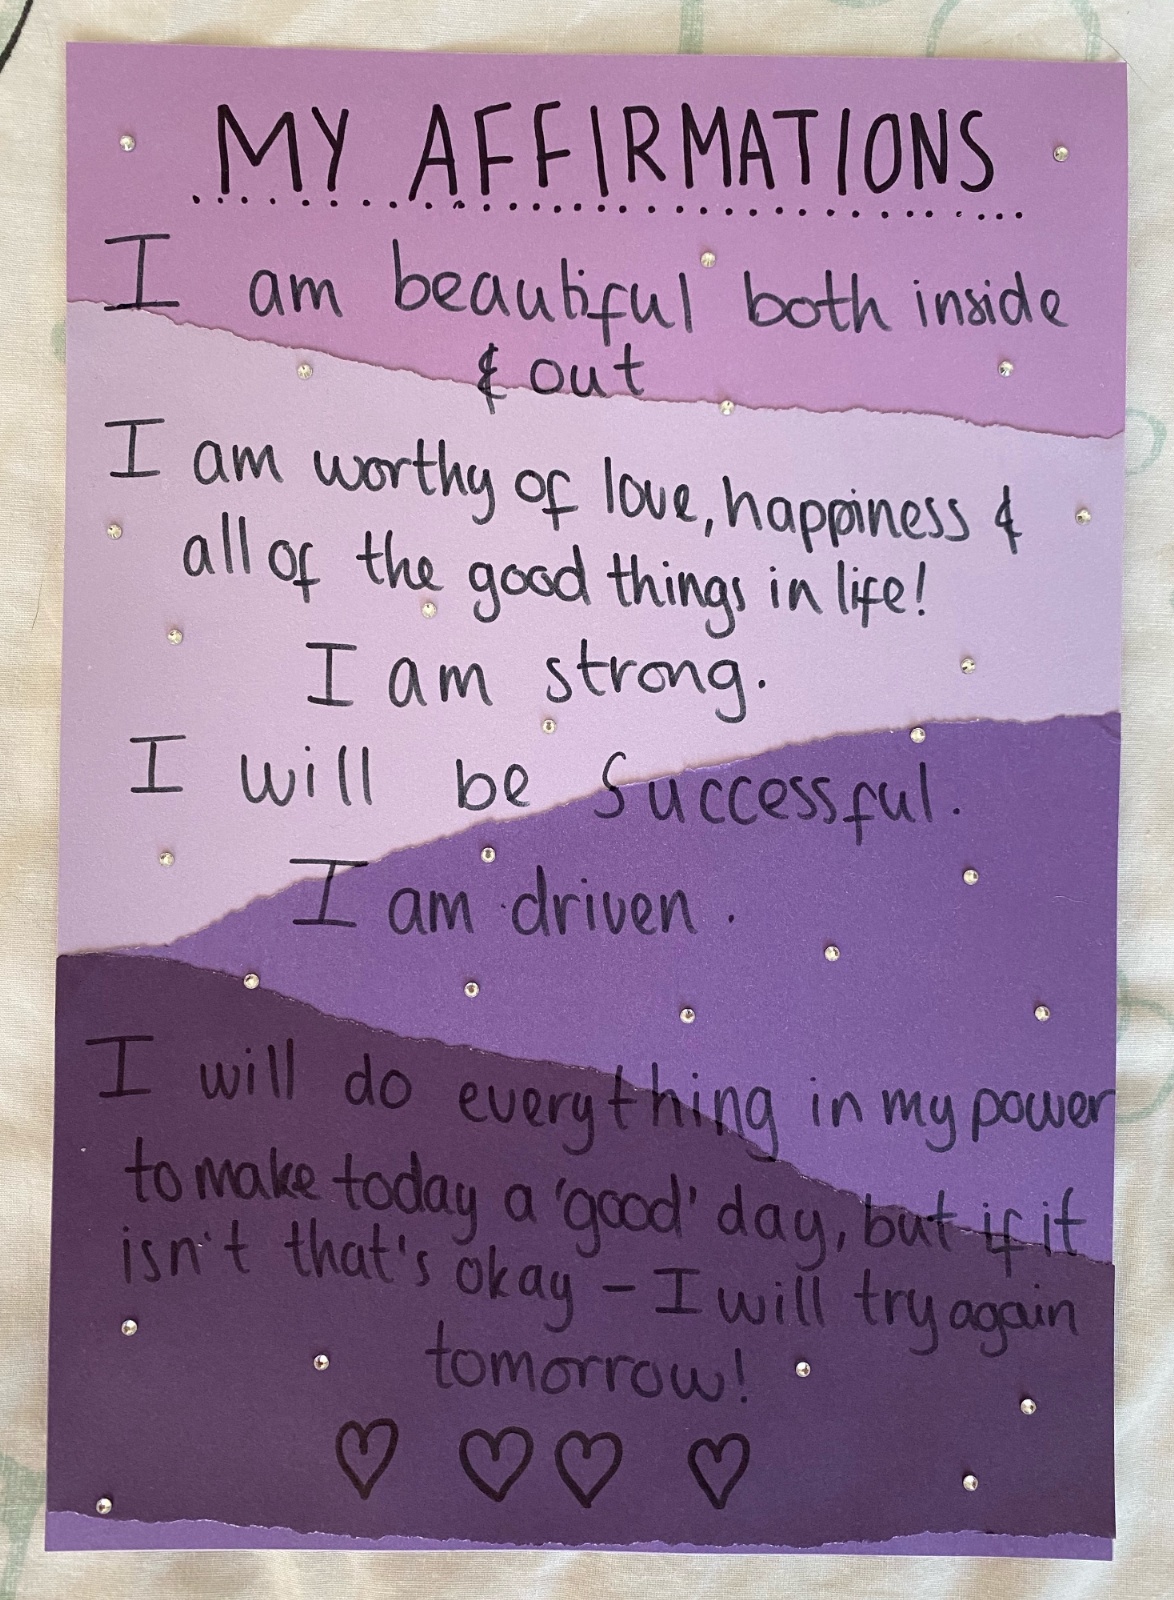 MY AFFIRMATIONS
I am beautiful both inside
& out
I am worthy of love, happiness &
all of the good things in life!
I am strong.
I will be Successful.
I am driven.
I will do everything in my power
to make today a 'good' day, but if it
isn't that's okay – I will try again
tomorrow!